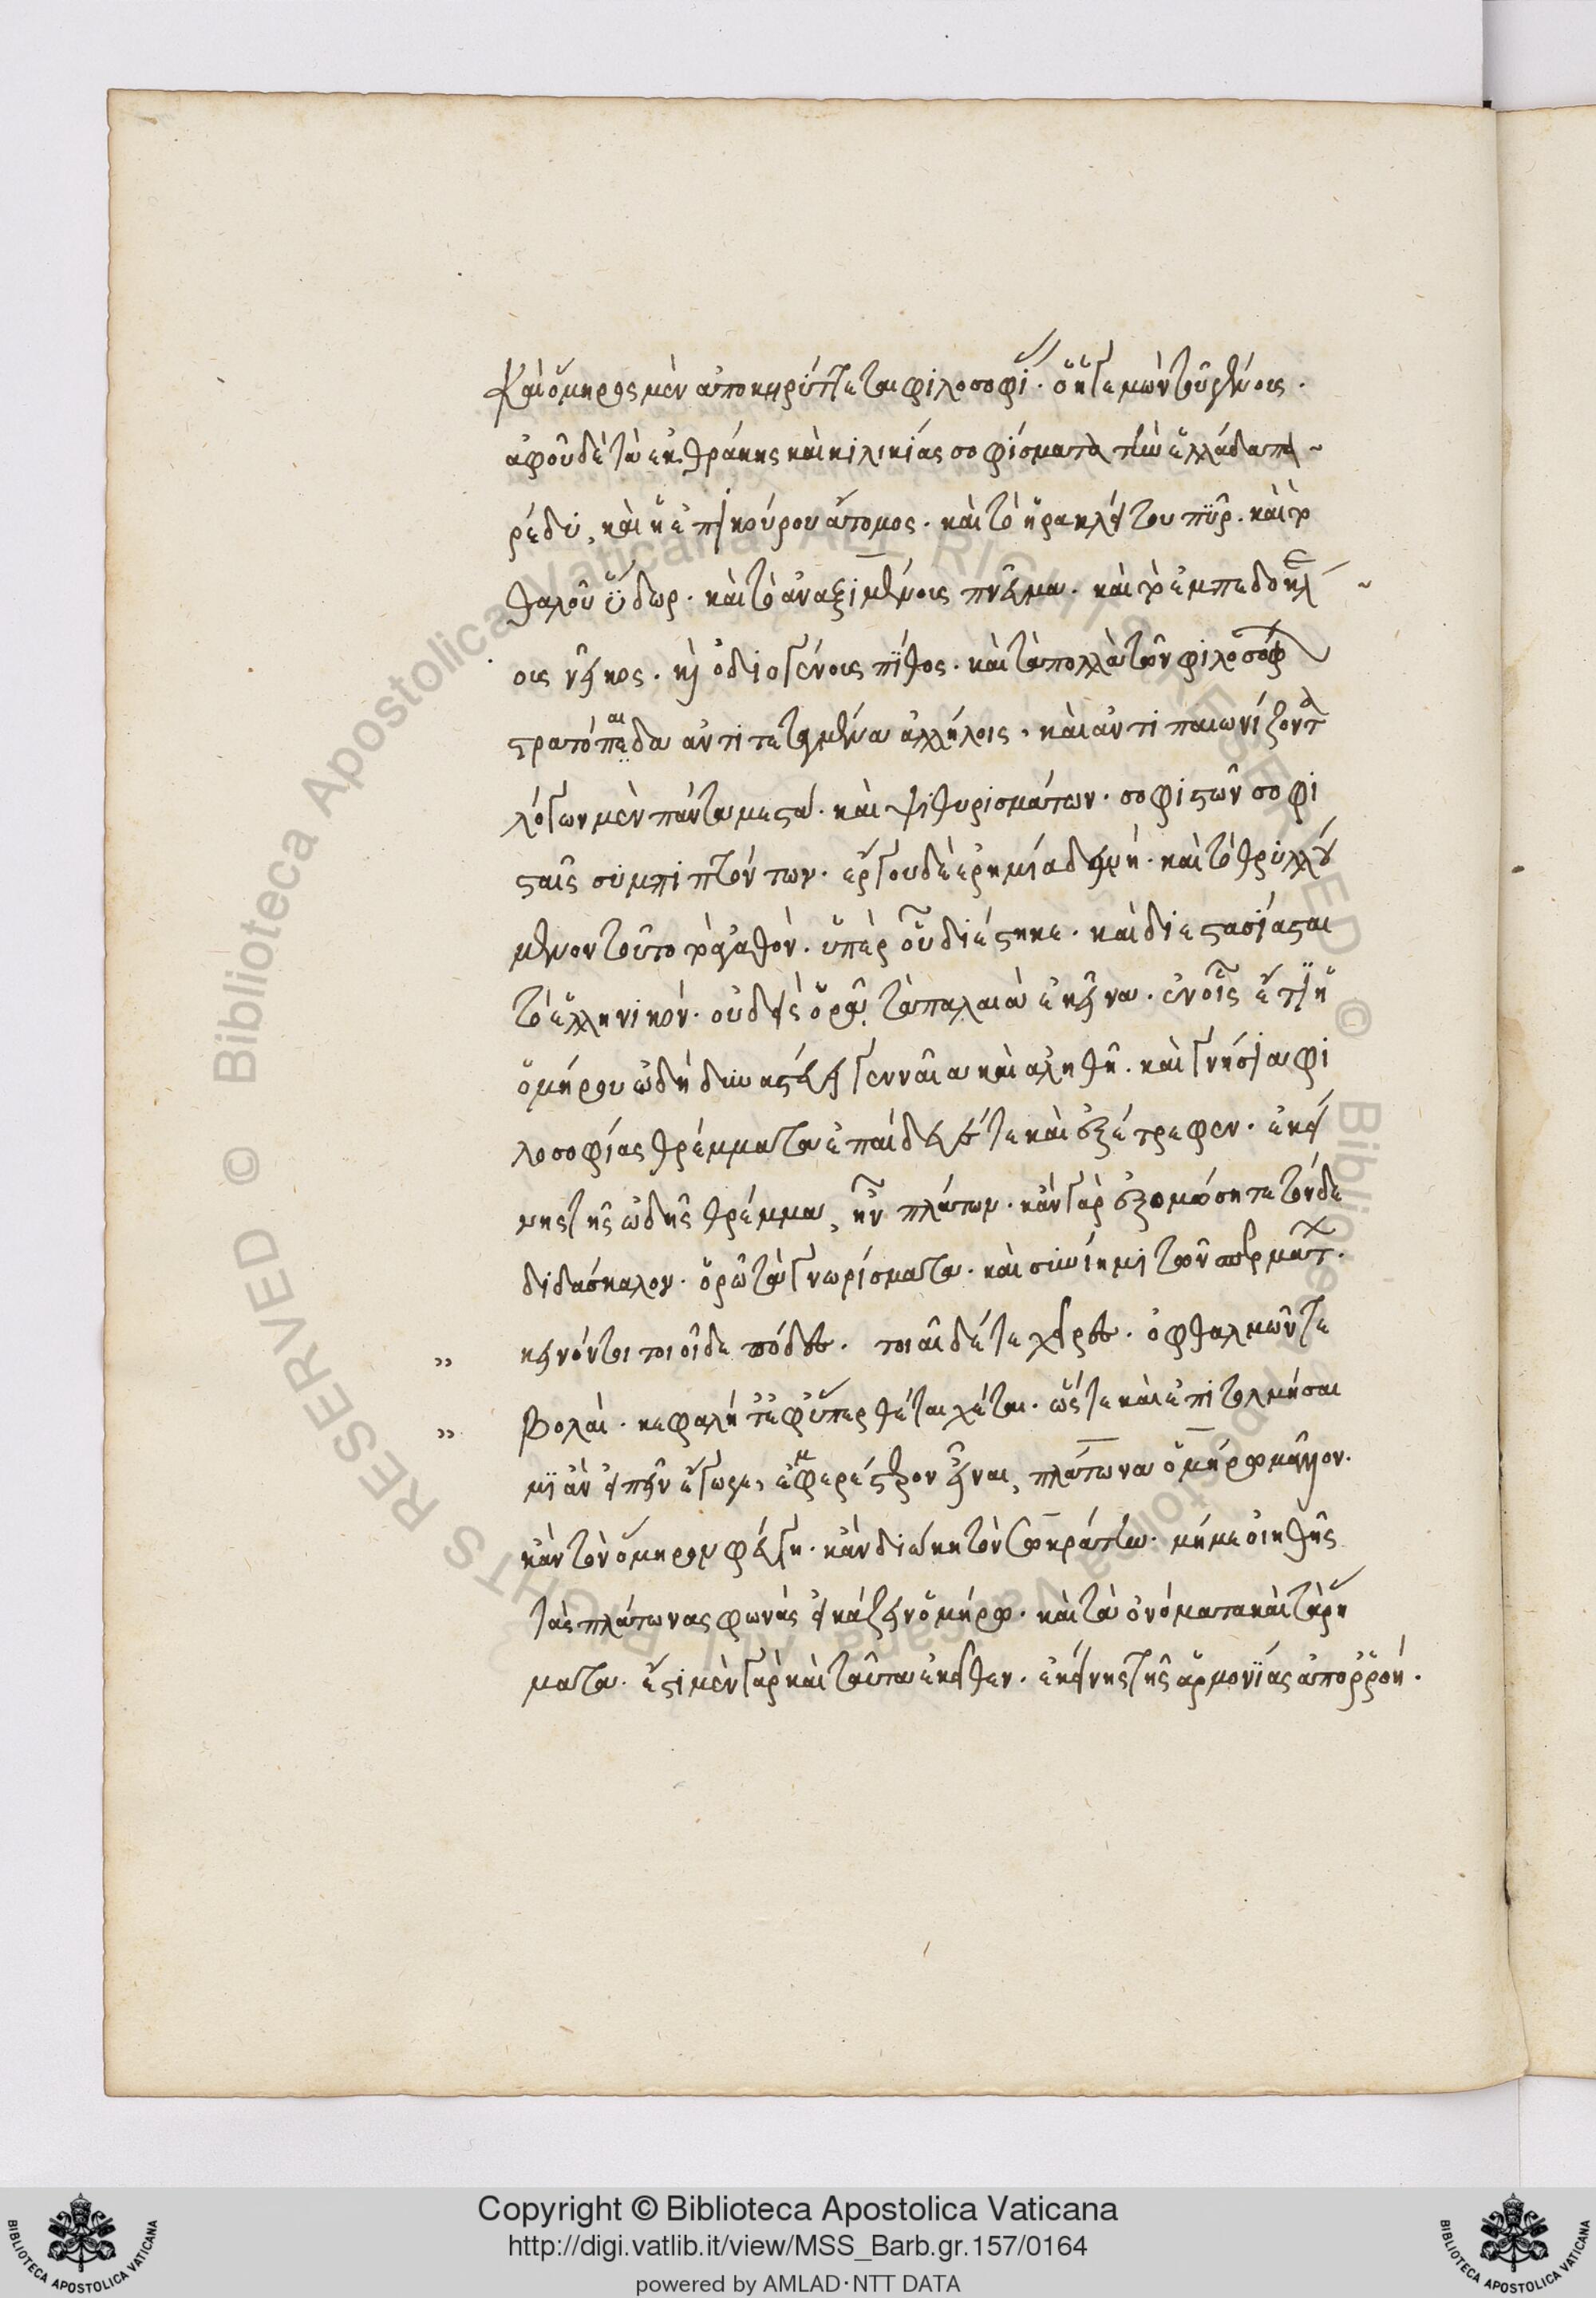 Καὶ ὅμηρος μὲν ἀποκηρύττεται φιλοσοφί. ὁ ἡγεμὼν τοῦ γένους.
ἀφοῦ δὲ τὰ ἐκ θράκης καὶ κιλικίας σοφίσματα τὴν ἑλλάδα πα
ρέδυ, καὶ ἡ ἐπικούρου ἄτομος. καὶ τὸ ἡρακλείτου πῦρ. καὶ τὸ
θαλοῦ ὕδωρ. καὶ τὸ ἀναξιμένους πνεῦμα. καὶ τὸ ἐμπεδοκλέ
ους νεῖκος. καὶ ὁ διογένους πίθος. καὶ τὰ πολλὰ τῶν φιλοσόφων
στρατόπεδα ἀντιτεταγμένα ἀλλήλοις. καὶ ἀντιπαιωνίζοντα
λόγων μὲν πάντα μεστά. καὶ ψιθυρισμάτων. σοφιστῶν σοφι
σταῖς συμπιπτόντων. ἔργου δὲ ἐρημία δεινή. καὶ τὸ θρυλλού
μενον τοῦτο τὸ ἀγαθόν. ὑπὲρ οὗ διέστηκε. καὶ διεστασίασται
τὸ ἑλληνικόν. οὐδεὶς ὁρᾷ. τὰ παλαιὰ ἐκεῖνα. ἐν οἷς ἔτι ἡ
ὁμήρου ᾠδὴ δυναστεύει γενναῖα καὶ ἀληθῆ. καὶ γνήσια φι
λοσοφίας θρέμματα ἐπαίδευέ τε καὶ ἐξέτρεφεν. ἐκεί
νης τῆς ᾠδῆς θρέμμα, ἦν πλάτων. κἂν γὰρ ἐξομόσηται τόνδε
διδάσκαλον. ὁρῶ τὰ γνωρίσματα. καὶ συνίημι τῶν σπερμάτων.
" κείνου τοι τοιοίδε πόδες. τοιαίδέ τε χεῖρες. ὀφθαλμῶν τε
" βολαί. κεφαλή τ' ἐφύπερθέ τε χαῖται. ὥστε καὶ ἐπιτολμήσαι
μι ἂν εἰπεῖν ἔγωγε, ἐμφερέστερον εἶναι, πλάτωνα ὁμήρῳ μᾶλλον.
κἂν τὸν ὅμηρον φεύγῃ. κἂν διώκῃ τὸν σωκράτην. μή με οἰηθῇς
τὰς πλάτωνας φωνὰς εἰκάζειν ὁμήρῳ. καὶ τὰ ὀνόματα καὶ τὰ ῥή
ματα. ἔστι μὲν γὰρ καὶ ταῦτα ἐκεῖθεν. ἐκείνης τῆς ἁρμονίας ἀπορροή.
Copyright © Biblioteca Apostolica Vaticana
http://digi.vatlib.it/view/MSS_Barb.gr.157/0164
powered by AMLAD·NTT DATA